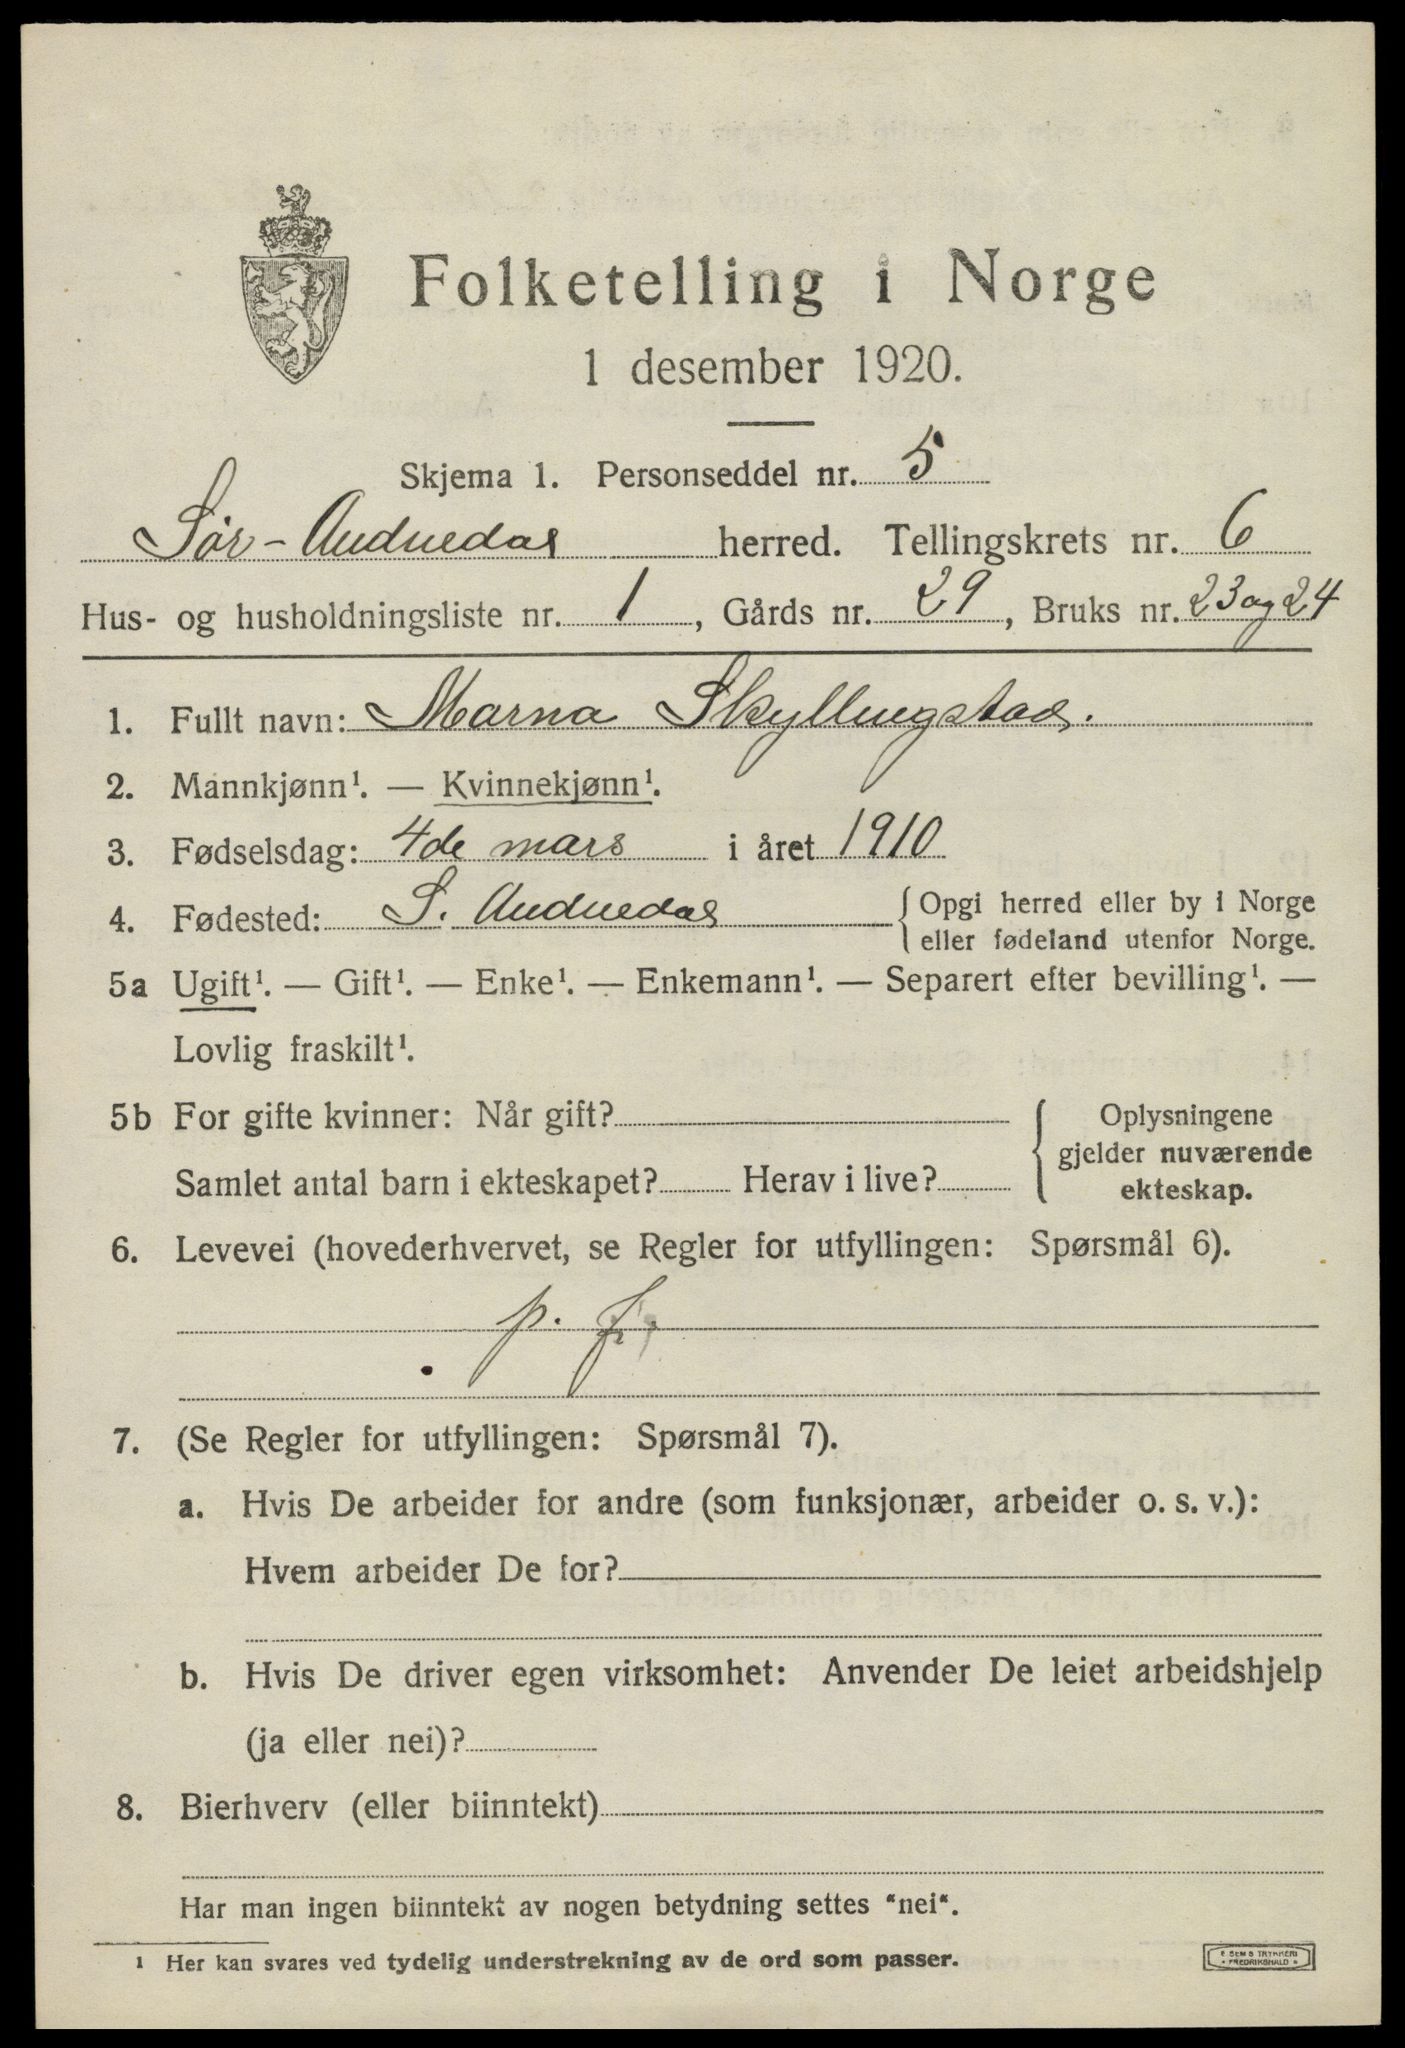 Folketelling i Norge
1 desember 1920.
Skjema 1. Personseddel nr. 5
Sør-Audnedal herred. Tellingskrets nr. 6
Hus- og husholdningsliste nr. 1, Gårds nr. 29, Bruks nr. 23 og 24
1. Fullt navn: Marna Skyllingstad.
2. Mannkjønn¹. — Kvinnekjønn¹.
3. Fødselsdag: 4de mars i året 1910
4. Fødested: S. Audnedal { Opgi herred eller by i Norge
eller fødeland utenfor Norge.
5a Ugift¹. — Gift¹. — Enke¹. — Enkemann¹. — Separert efter bevilling¹. —
Lovlig fraskilt¹.
5b For gifte kvinner: Når gift?
Samlet antal barn i ekteskapet? Herav i live?
{ Oplysningene
gjelder nuværende
ekteskap.
6. Levevei (hovederhvervet, se Regler for utfyllingen: Spørsmål 6).
p. f.
7. (Se Regler for utfyllingen: Spørsmål 7).
a. Hvis De arbeider for andre (som funksjonær, arbeider o. s. v.):
Hvem arbeider De for?
b. Hvis De driver egen virksomhet: Anvender De leiet arbeidshjelp
(ja eller nei)?
8. Bierhverv (eller biinntekt)
Har man ingen biinntekt av nogen betydning settes "nei".
¹ Her kan svares ved tydelig understrekning av de ord som passer.
E. SEM'S TRYKKERI
FREDRIKSHALD